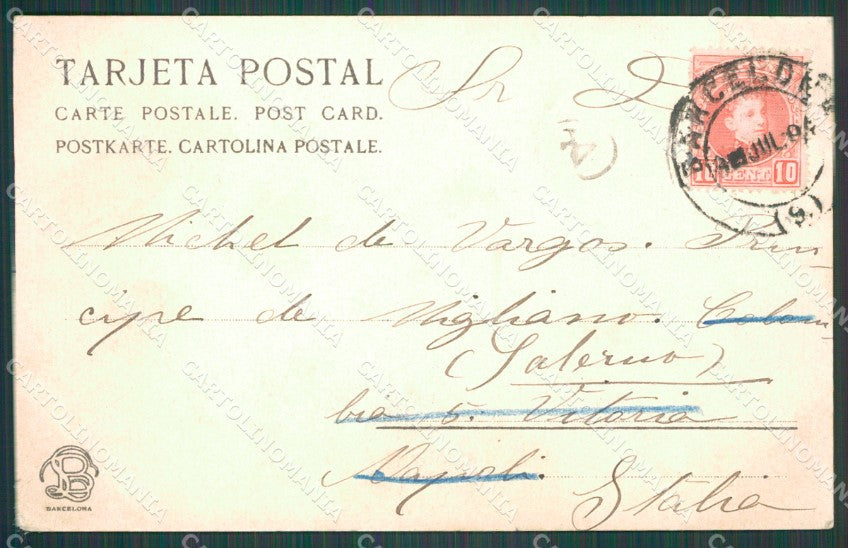 TARJETA POSTAL
CARTE POSTALE. POST CARD.
POSTKARTE. CARTOLINA POSTALE.
Sr D.
BARCELONA
JUL. 04
(S)
10 CENT. 10
4
Michel de Vargos. Prin
cipe de Migliano. Colom
(Salerno)
bia 5. Vitoria
Napoli.
Italia
BARCELONA
CARTOLINOMANIA